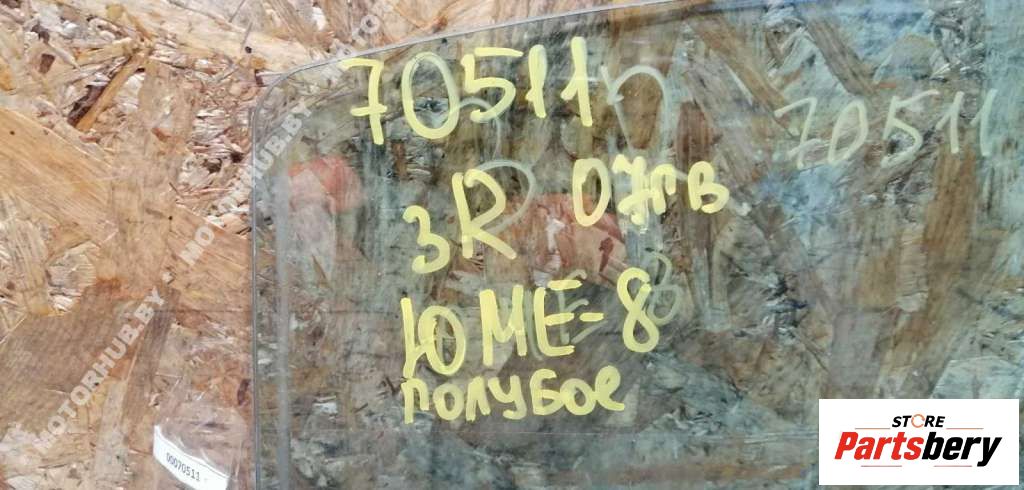 70511
70511
3R 07гв
ЮМЕ-8
полубое
00070511
MOTORHUB.BY
MOTORHUB.BY
MOTORHUB.BY
STORE
Partsbery